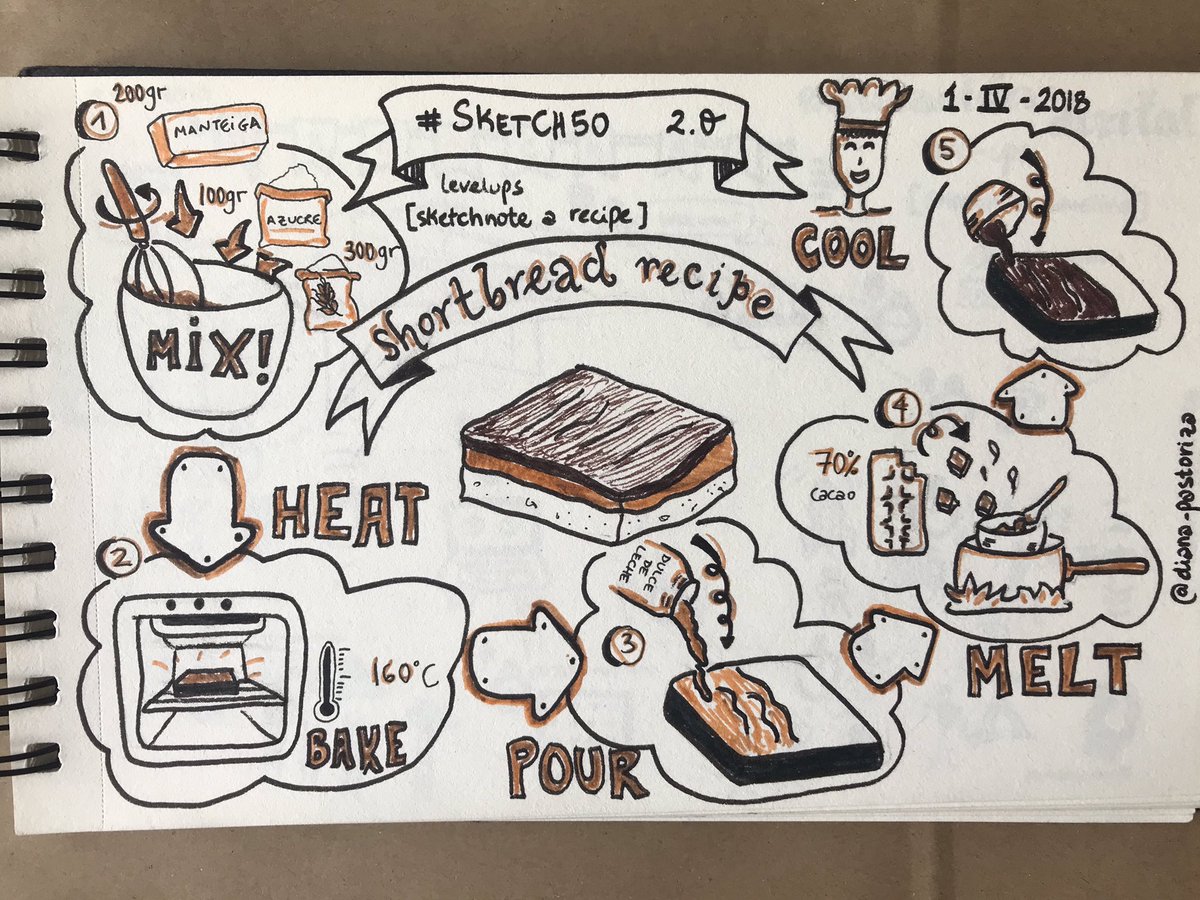 # SKETCH50 2.0
levelups
[sketchnote a recipe]
Shortbread recipe
1 - IV - 2018
1
200gr
MANTEIGA
100gr
AZUCRE
300gr
MIX!
HEAT
2
160°C
BAKE
3
DULCE
DE
LECHE
POUR
4
70%
cacao
MELT
5
COOL
@diana-pastoriza